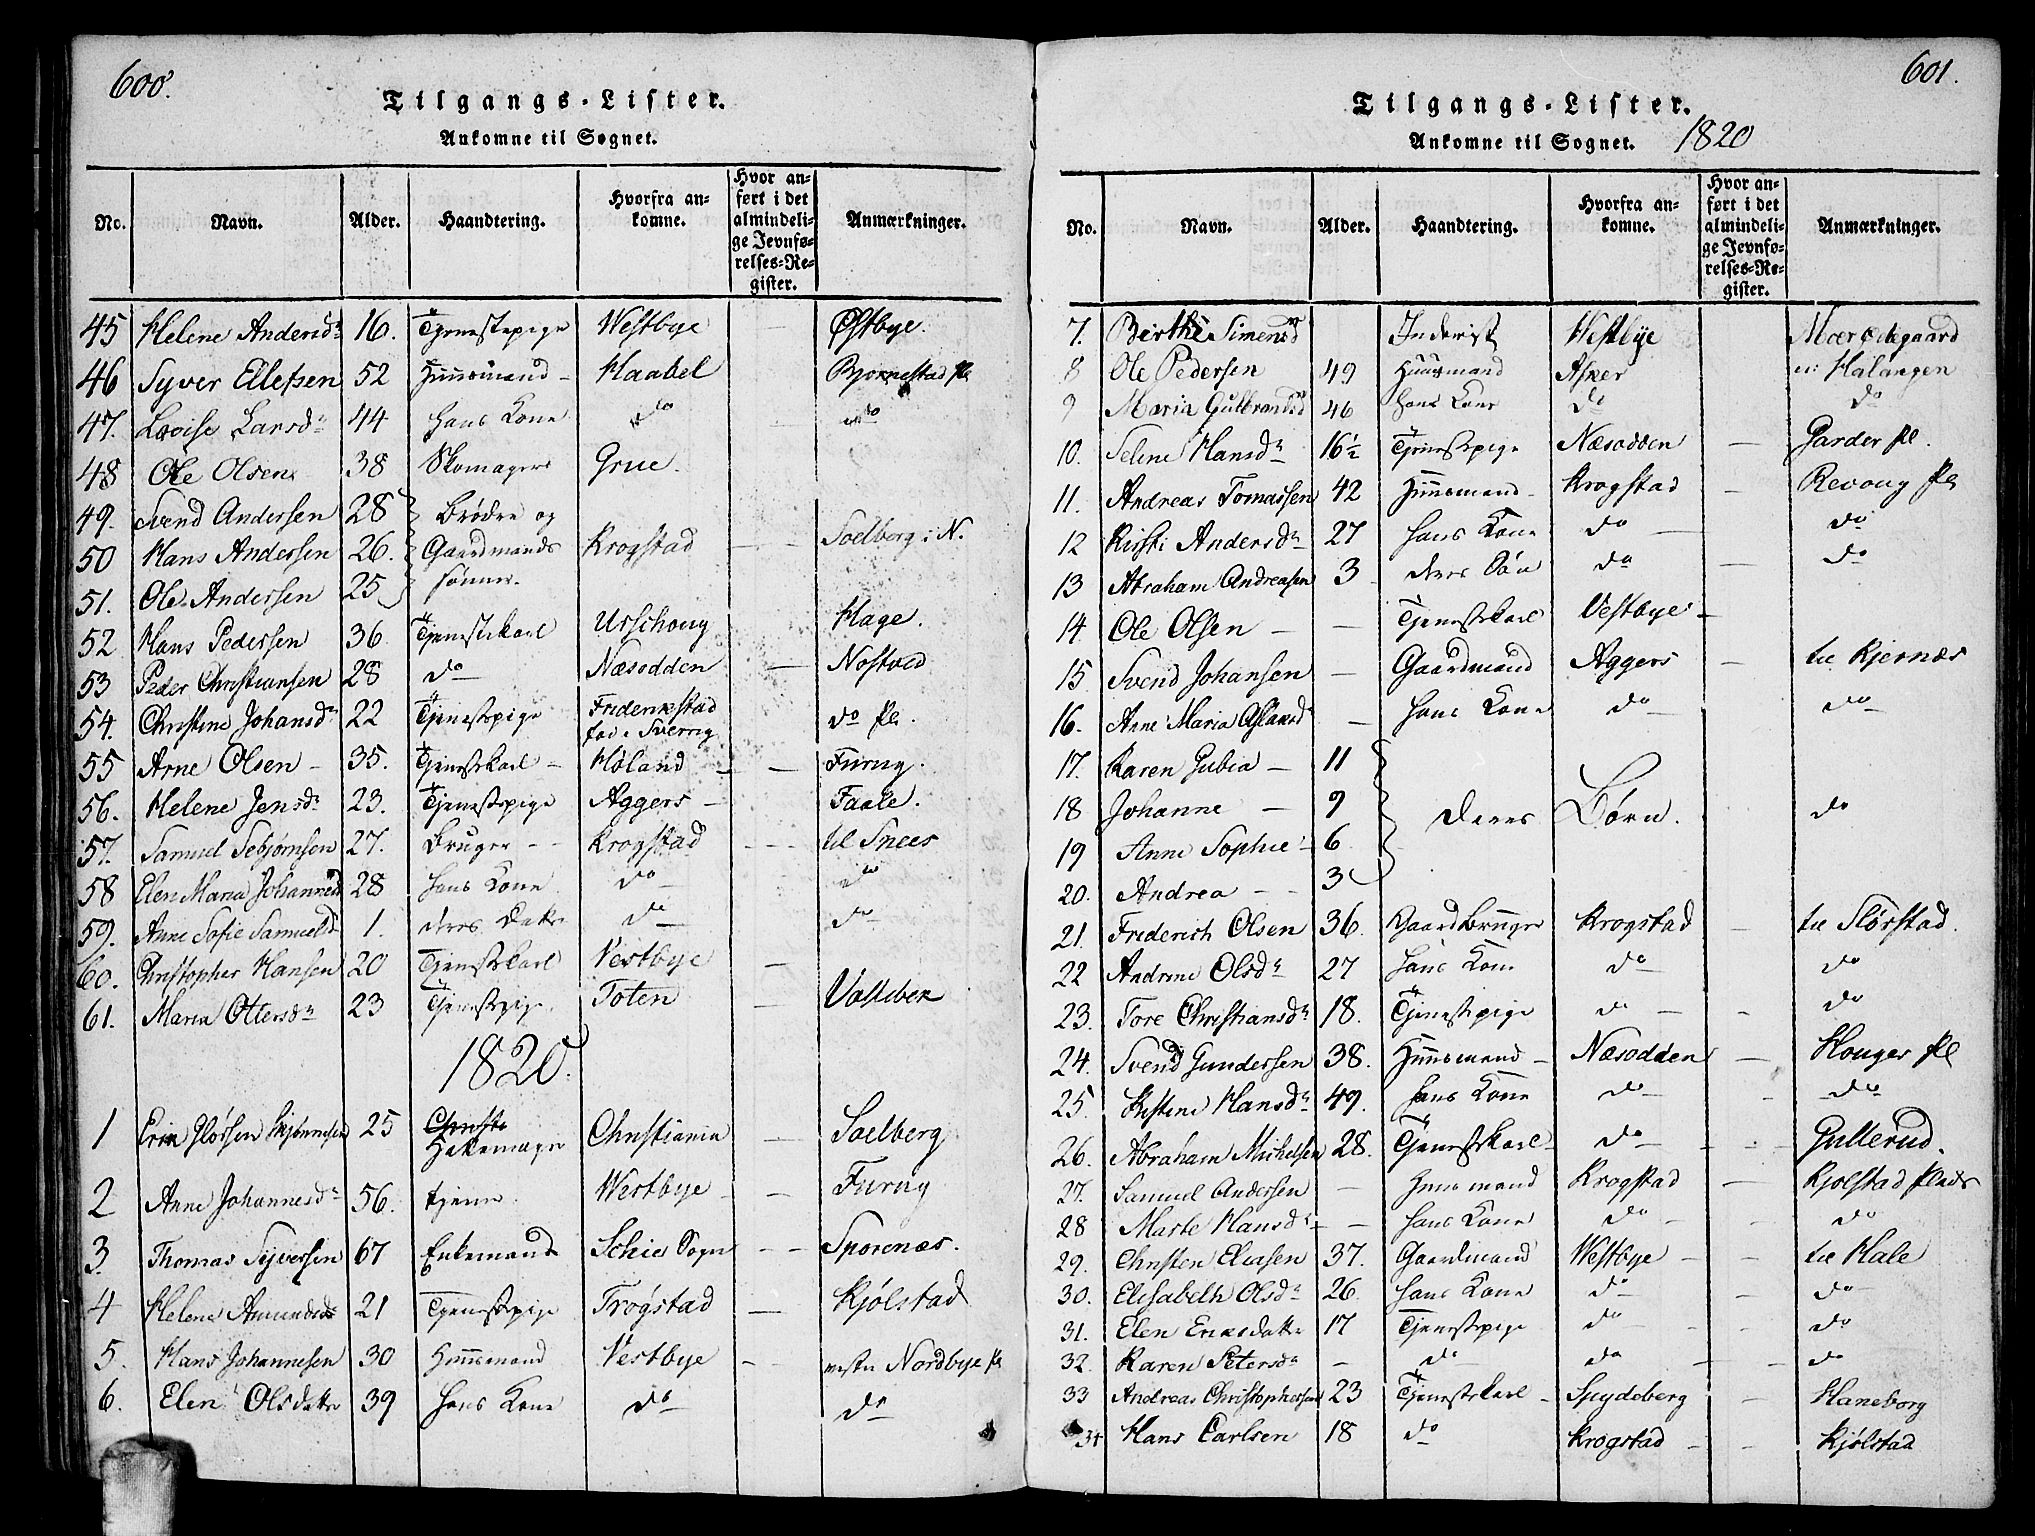 600.
Tilgangs-Lister.
Ankomne til Sognet.
No. Navn. Alder. Haandtering. Hvorfra ankomne. Hvor anført i det almindelige Jevnførelses-Register. Anmærkninger.
45 Helene Andersdr 16. Tjenestepige Westbye Østbye.
46 Syver Ellefsen 52 Huusmand Haabel Bjørnestad pl
47. Lovise Larsdr 44 hans Kone do do
48 Ole Olsen 38 Skomager Grue.
49. Svend Andersen 28 Brødre og
50 Hans Andersen 26. Gaardmands Krogstad Soelberg i N.
51. Ole Andersen 25 sønner.
52 Hans Pedersen 36 Tjenestekarl Urschoug Hage.
53 Peder Christiansen 28 do Næsodden Nostved
54. Christine Johansdr 22 Tjenestepige Friderikstad do pl.
fød i Sverrig
55 Arne Olsen 35. Tjenestekarl Høland Furuy.
56. Helene Jensdr 23. Tjenestepige Aggers Faale.
57. Samuel Sebjørnsen 27. Bruger Krogstad til Snees
58 Elen Maria Johannesd 28 hans Kone do do
59. Anne Sofie Samuelsd 1. deres Datter do do
60. Christopher Hansen 20 Tjenestekarl Vestbye
61. Maria Ottersdr 23 Tjenestepige Toten Vallebek
1820.
1 25 Christiania Soelberg
2 Anne Johannesdr 56. tjener Westbye Furuy
3 Thomas Syversen 67 Enkemand Schie Sogn Sporenæs.
4 Helene Amundsdr 21 Tjenestepige Trøgstad Kjølstad
5. Hans Johannesen 30 Huusmand Vestbye Nordbye pl
6. Elen Olsdatter 39 hans Kone do do
601.
Tilgangs-Lister.
Ankomne til Sognet. 1820
No. Navn. Alder. Haandtering. Hvorfra ankomne. Hvor anført i det almindelige Jevnførelses-Register. Anmærkninger.
7. Birthe Simensd Inderist Vestbye Moer Ødegaard
8 Ole Pedersen 49 Huusmand Asker Halangen
9 Maria Gulbrandsd 46 hans Kone do do
10. Selene Hansdr 16½ Tjenestepige Næsodden Garder pl.
11. Andreas Tomassen 42 Huusmand Krogstad Revoug pl
12 Kirsti Andersdr 27 hans Kone do do
13 Abraham Andreasen 3 deres Søn do do
14 Ole Olsen Tjenestekarl Vestbye
15 Svend Johansen Gaardmand Aggers til Kjernæs
16. Anne Maria Aslaksd hans Kone do do
17. Karen Gubia 11
18 Johanne 9 deres Børn. do
19 Anne Sophie 6
20. Andrea 3
21. Friderich Olsen 36. Gaardbruger Krogstad til Slørstad.
22 Andrine Olsdr 27 hans Kone do do
23. Tore Christiansdr 18. Tjenestepige do do
24. Svend Gundersen 38. Huusmand Næsodden Houger pl
25. Kistine Hansdr 49. hans Kone do do
26. Abraham Michelsen 28. Tjenestekarl do Gullerud.
27. Samuel Andersen Huusmand Krogstad Kjølstad plads
28 Marte Hansdr hans Kone do do
29. Christen Eliasen 37. Gaardmand Westbye til Hale
30. Elisabeth Olsdr 26. hans Kone do do
31. Elen Eriksdatter 17 Tjenestepige do do
32. Karen Petersdr do do do
33 Andreas Christophersen 23 Tjenestekarl Spydeberg Haneborg
34 Hans Carlsen 18 do Krogstad Kjølstad